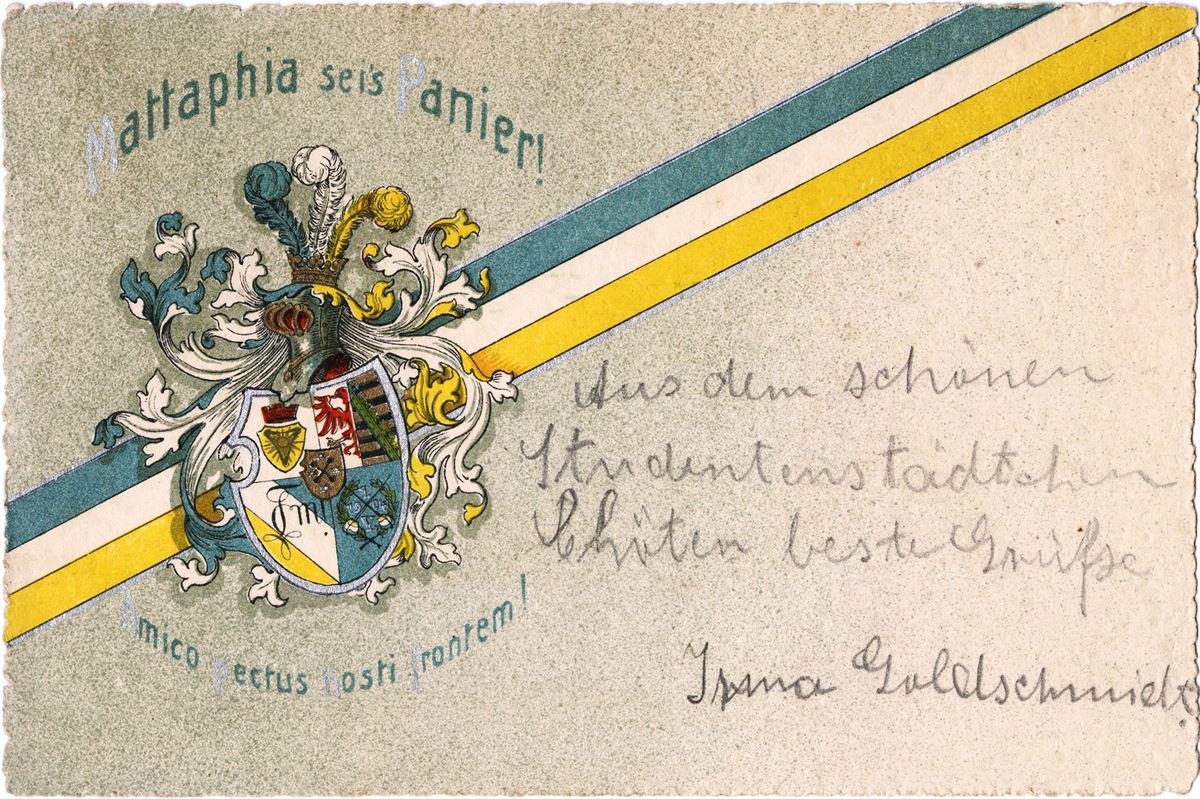 Mattaphia sei's Panier!
Amico pectus hosti frontem!
Aus dem schönen
Studentenstädtchen
Chöten beste Grüße
Irma Goldschmidt.